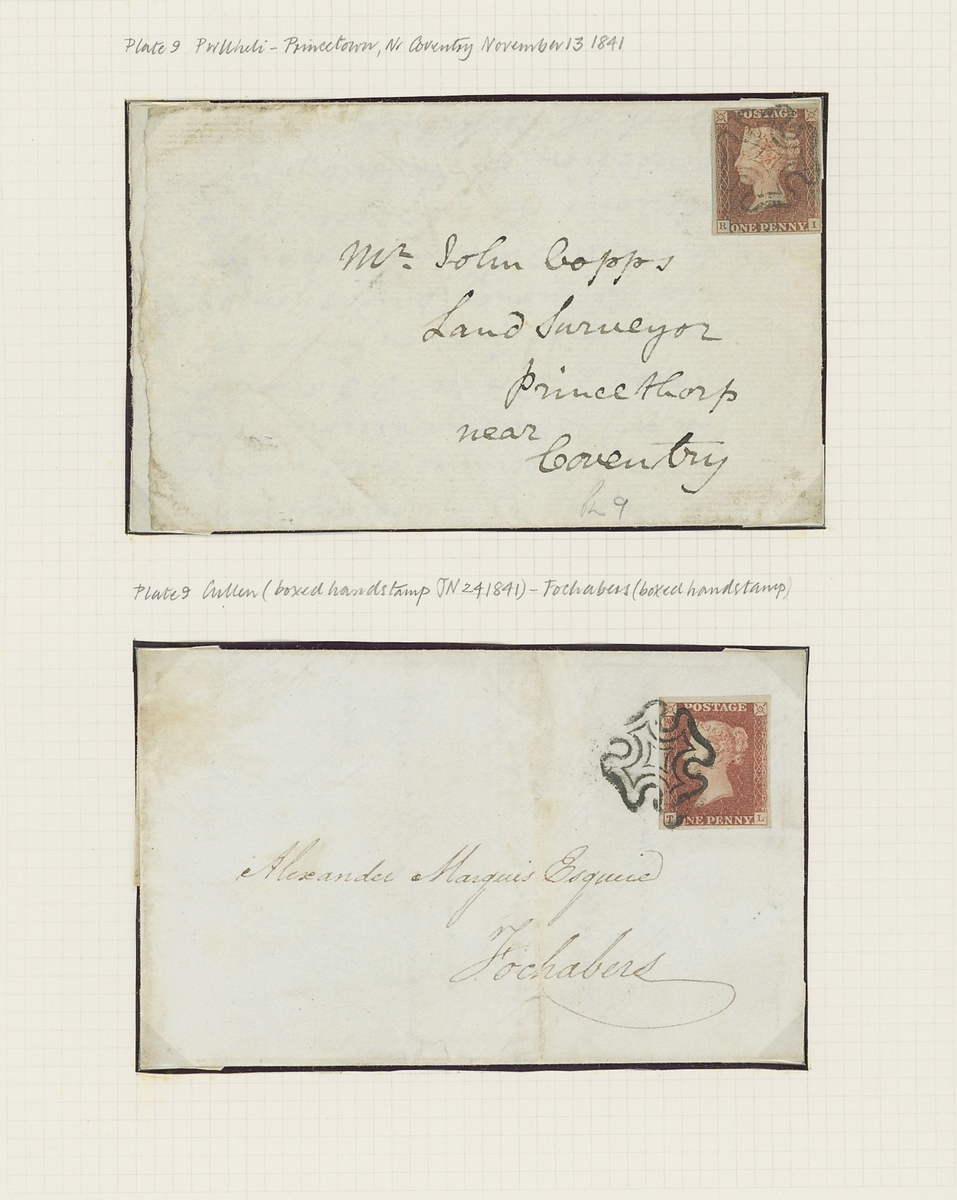 Plate 9 Pwllheli - Princetown, Nr Coventry November 13 1841
POSTAGE
R ONE PENNY I
Mr. John Copps
Land Surveyor
Princethorp
near
Coventry
PL 9
Plate 9 Cullen (boxed handstamp JN 24 1841) - Fochabers (boxed handstamp)
POSTAGE
T ONE PENNY L
Alexander Marquis Esquire
Fochabers